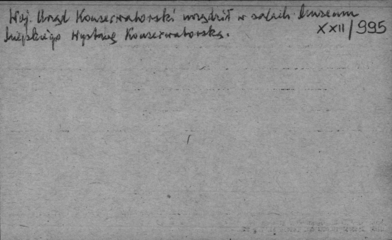 Woj. Urząd Konserwatorski urządził w salach Muzeum
Miejskiego Wystawę Konserwatorską.
XXII/995